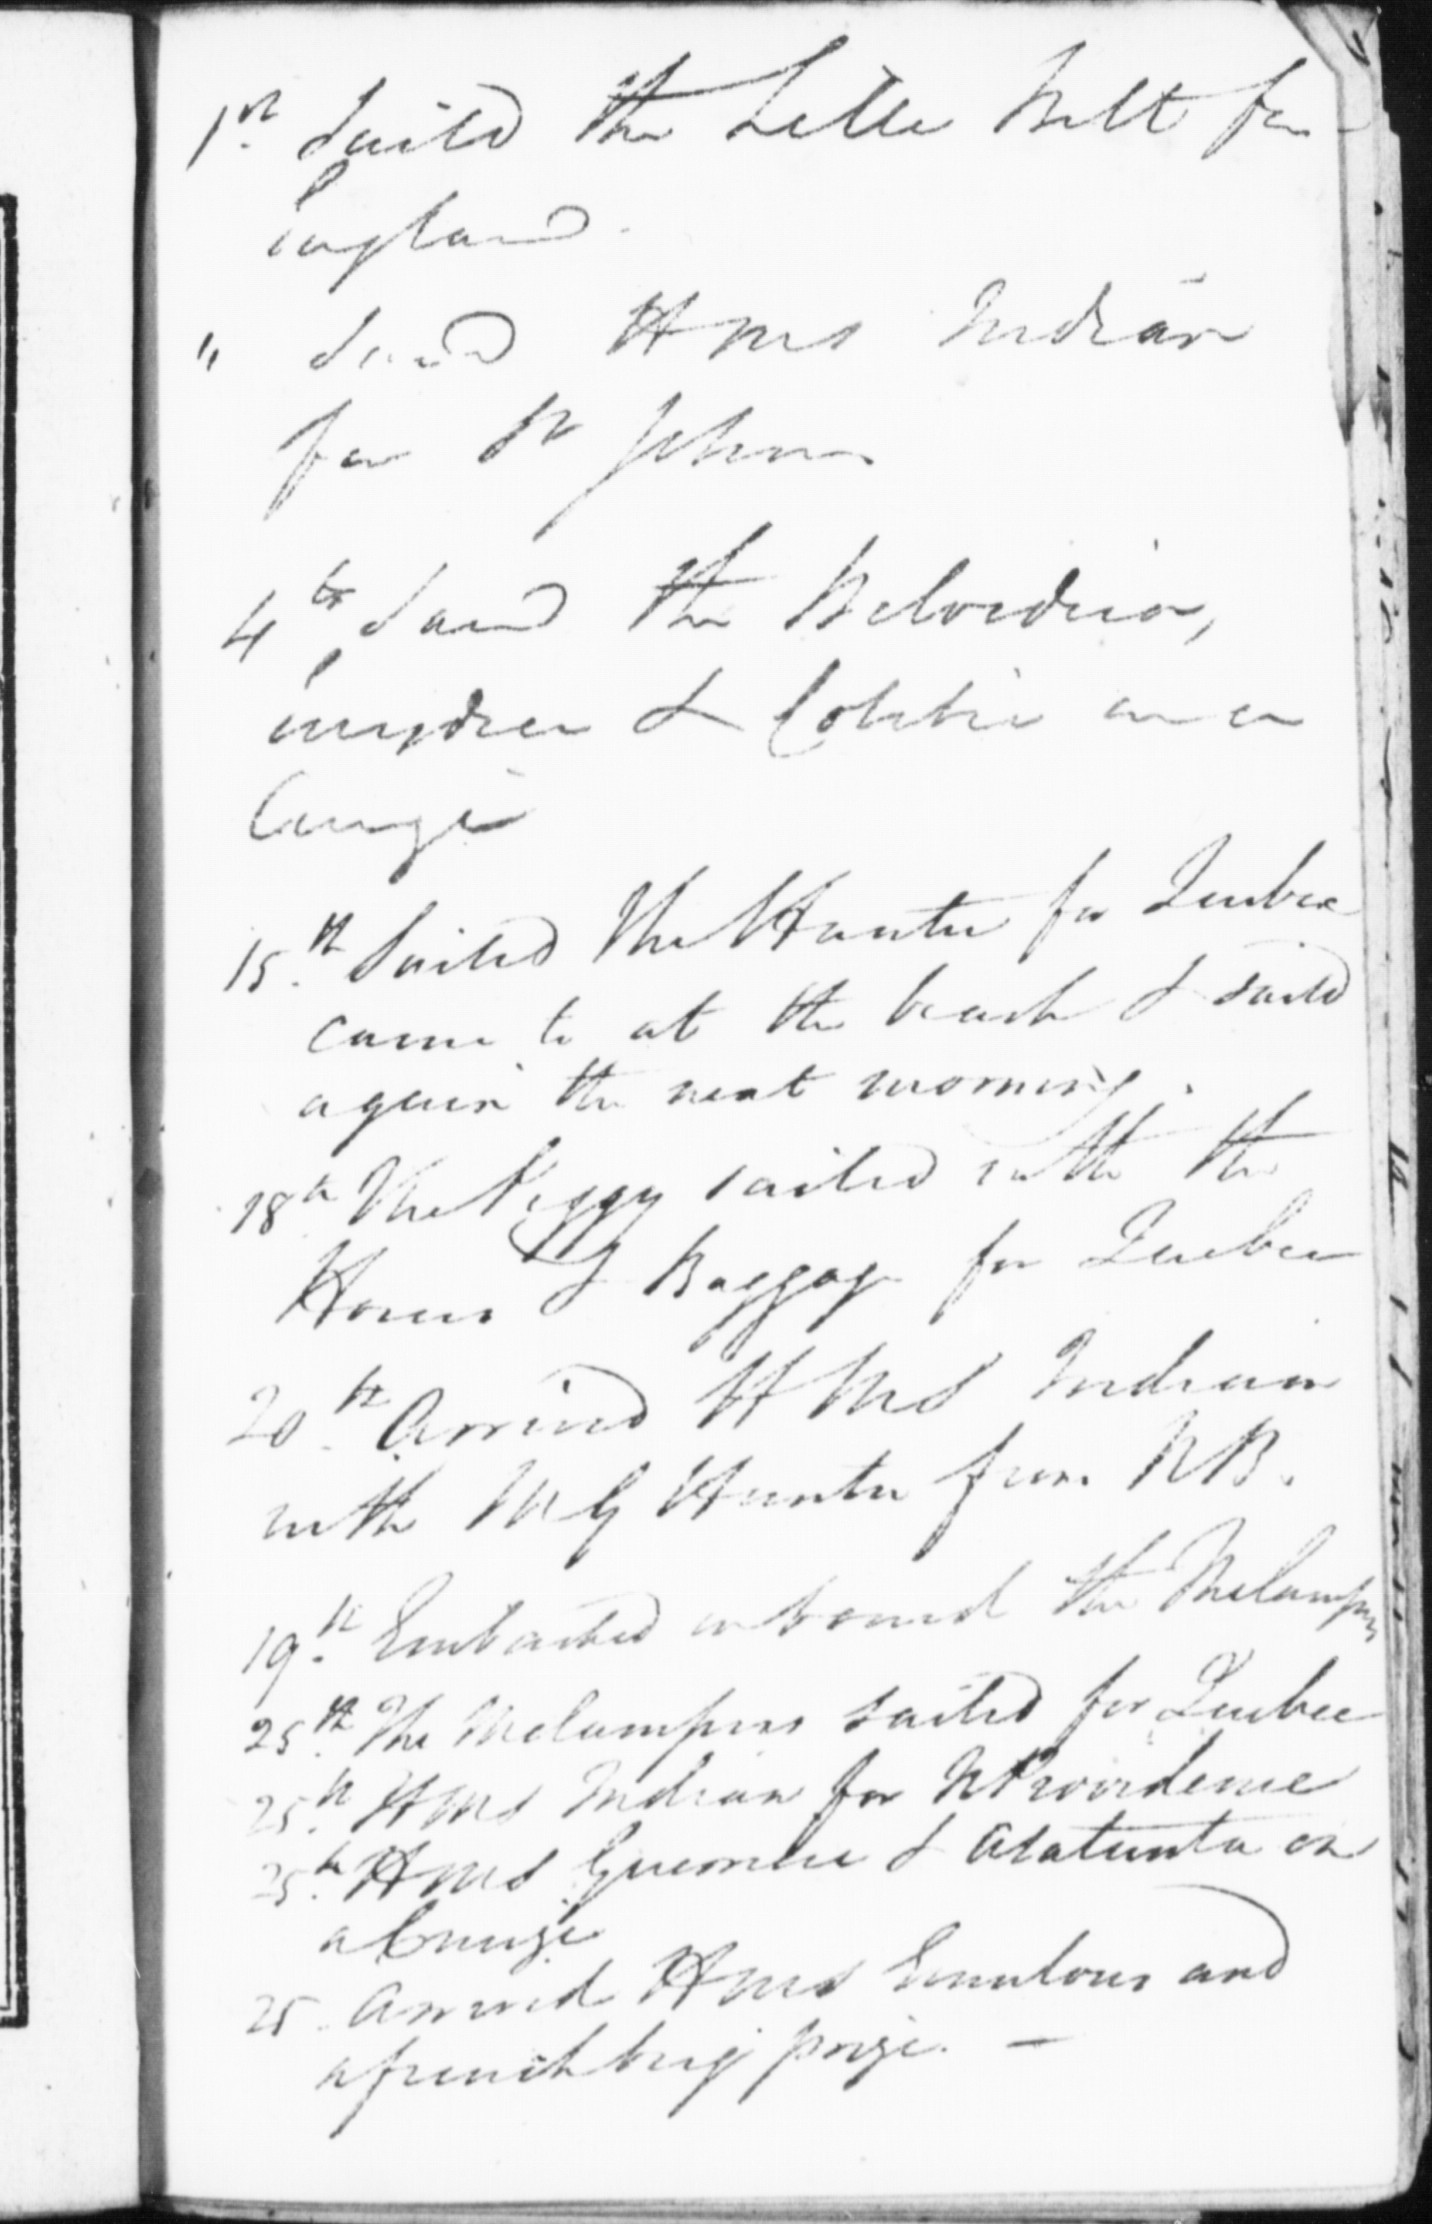 1st Saild the Little Belt for
England.
" Saild HMS Indian
for St Johns
4th Saild the Belvedira,
Eurydice & Colibrie on a
Cruize
15th Sailed The Hunter for Quebec
came to at the beach & saild
again the next morning.
18th The Peggy sailed with the
Horses & Baggage for Quebec
20th Arrived HMS Indian
with M G Hunter from NB.
19th Embarked on board the Melampus
25th The Melampus sailed for Quebec
25th HMS Indian for N Providence
25th HMS Guerriere & Atalanta on
a Cruize
25 Arrived HMS Emulous and
a french brig prize. —